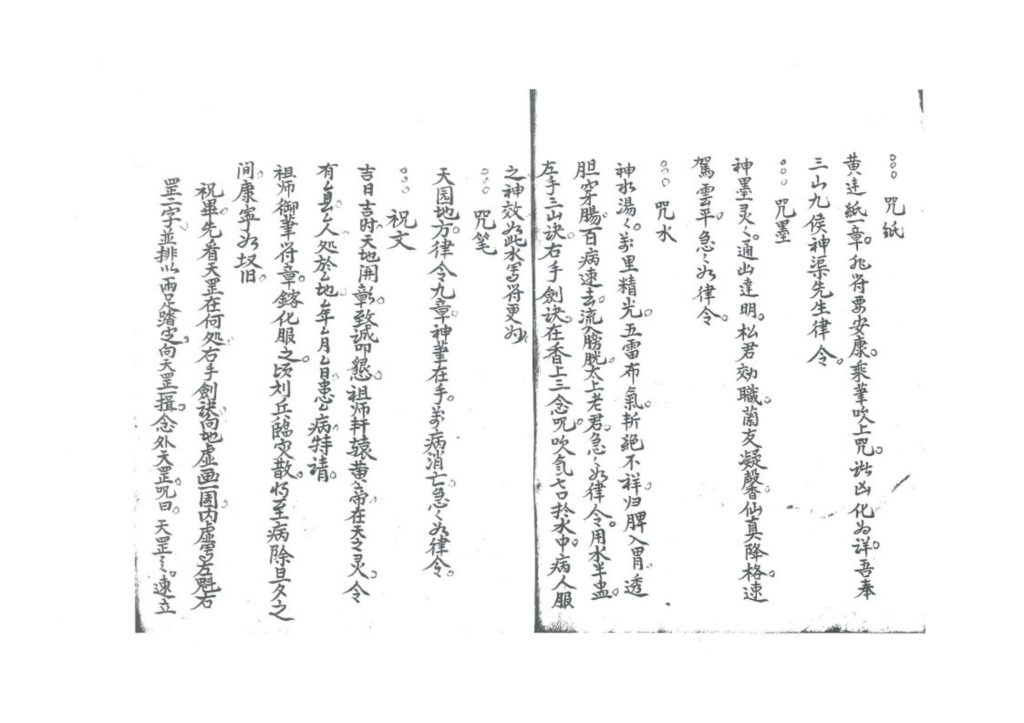 。。。 咒紙
黄達紙一章。 符要安康。乘筆吹上咒。諸凶化为祥。吾奉
三山九侯神渠先生律令。
。。。 咒墨
神墨灵〻。通幽達明。松君効職。蘭友凝馨。仙真降格。速
駕雲平。急〻如律令。
。。。 咒水
神水湯〻。萬里精光。五雷布氣。斩絕不祥。归脾入胃。透
胆穿腸。百病速去。流入膀胱。太上老君。急〻如律令。用水半盅。
左手三山诀。右手劍诀。在香上三念咒。吹氣七口於水中。病人服
之神效。如此水寫符更妙。
。。。 咒笔
天园地方。律令九章。神筆在手。萬病消亡。急〻如律令。
。。。 祝文
吉日吉时。天地開彰。致诚叩懇。祖师軒辕黄帝在天之灵。令
有厶县厶人处於厶地。厶年厶月厶日患厶病。特请。
祖师御筆符章。鎔化服之。顷刻兵臨灾散。 至病除。旦夕之
间。康寧如旧。
祝畢先看天罡在何处。右手劍诀向地虚画一圈。内虚寫左魁右
罡二字並排。以两足踏定。向天罡一揖。念外天罡咒曰。天罡〻〻。速立